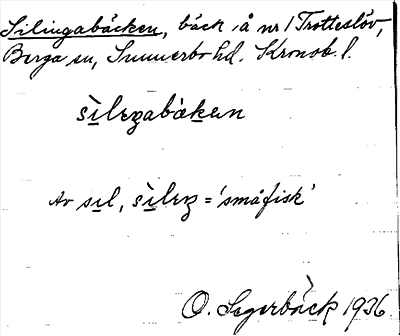 Silingabäcken, bäck i å nr 1 Trotteslöv,
Berga sn, Sunnerbo hd. Kronob. l.
sìlıꞑabäken
Av sil, sìlıꞑ = 'småfisk'
O. Sagerbäck 1936